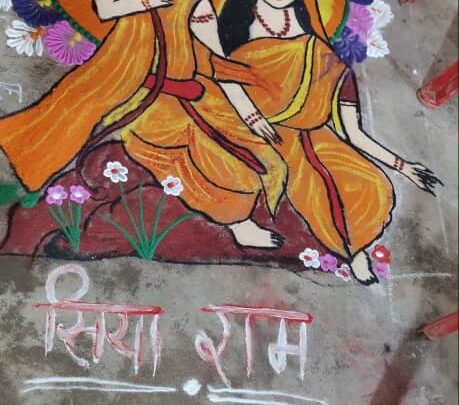 सिया राम